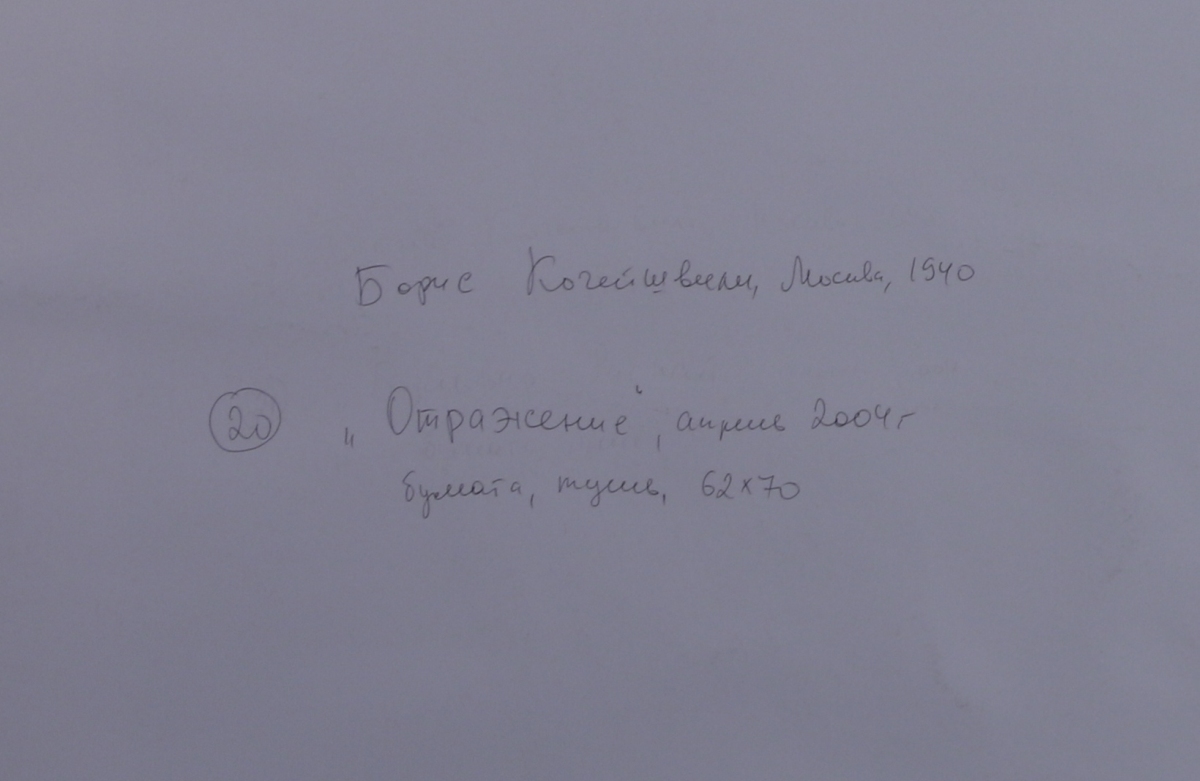 Борис Кочейшвили, Москва, 1940
20 „Отражение“, апрель 2004 г
бумага, тушь, 62×70